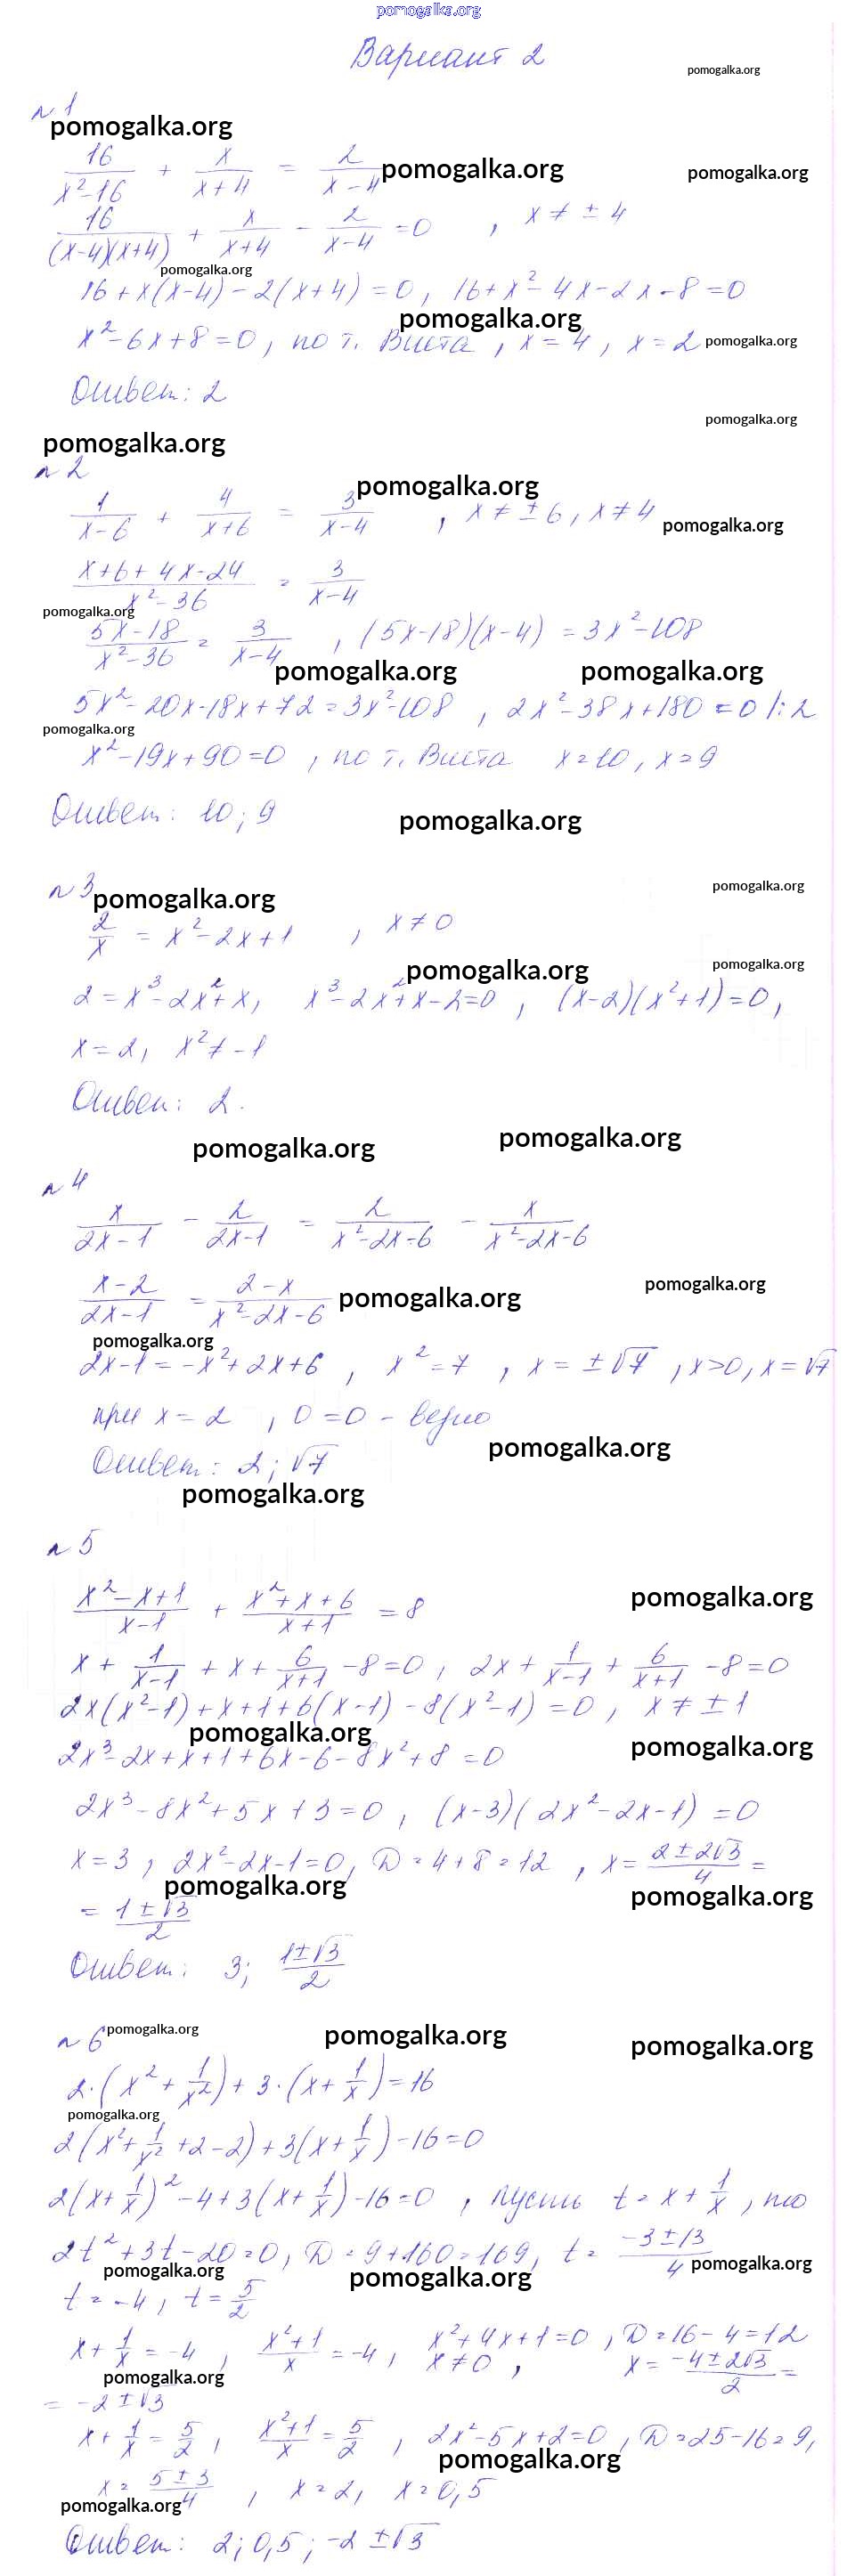 pomogalka.org
Вариант 2
pomogalka.org
№1
pomogalka.org
16/(x²-16) + x/(x+4) = 2/(x-4)
pomogalka.org
pomogalka.org
16/((x-4)(x+4)) + x/(x+4) - 2/(x-4) = 0, x ≠ ± 4
pomogalka.org
16 + x(x-4) - 2(x+4) = 0, 16 + x² - 4x - 2x - 8 = 0
pomogalka.org
x² - 6x + 8 = 0, по т. Виета, x = 4, x = 2
pomogalka.org
Ответ: 2
pomogalka.org
pomogalka.org
№2
pomogalka.org
1/(x-6) + 4/(x+6) = 3/(x-4), x ≠ ± 6, x ≠ 4
pomogalka.org
(x+6+4x-24)/(x²-36) = 3/(x-4)
pomogalka.org
(5x-18)/(x²-36) = 3/(x-4), (5x-18)(x-4) = 3x²-108
pomogalka.org
pomogalka.org
5x² - 20x - 18x + 72 = 3x² - 108, 2x² - 38x + 180 = 0 /: 2
pomogalka.org
x² - 19x + 90 = 0, по т. Виета x = 10, x = 9
Ответ: 10; 9
pomogalka.org
№3
pomogalka.org
pomogalka.org
2/x = x² - 2x + 1, x ≠ 0
pomogalka.org
pomogalka.org
2 = x³ - 2x² + x, x³ - 2x² + x - 2 = 0, (x-2)(x²+1) = 0,
x = 2, x² ≠ -1
Ответ: 2.
pomogalka.org
pomogalka.org
№4
x/(2x-1) - 2/(2x-1) = 2/(x²-2x-6) - x/(x²-2x-6)
(x-2)/(2x-1) = (2-x)/(x²-2x-6)
pomogalka.org
pomogalka.org
pomogalka.org
2x-1 = -x²+2x+6, x² = 7, x = ±√7, x>0, x = √7
при x = 2, 0 = 0 - верно
Ответ: 2; √7
pomogalka.org
pomogalka.org
№5
(x²-x+1)/(x-1) + (x²+x+6)/(x+1) = 8
pomogalka.org
x + 1/(x-1) + x + 6/(x+1) - 8 = 0, 2x + 1/(x-1) + 6/(x+1) - 8 = 0
2x(x²-1) + x + 1 + 6(x-1) - 8(x²-1) = 0, x ≠ ± 1
pomogalka.org
pomogalka.org
2x³ - 2x + x + 1 + 6x - 6 - 8x² + 8 = 0
2x³ - 8x² + 5x + 3 = 0, (x-3)(2x²-2x-1) = 0
x = 3, 2x²-2x-1 = 0, D = 4+8 = 12, x = (2±2√3)/4 =
pomogalka.org
pomogalka.org
= (1±√3)/2
Ответ: 3; (1±√3)/2
№6
pomogalka.org
pomogalka.org
pomogalka.org
2·(x² + 1/x²) + 3·(x + 1/x) = 16
pomogalka.org
2(x² + 1/x² + 2 - 2) + 3(x + 1/x) - 16 = 0
2(x + 1/x)² - 4 + 3(x + 1/x) - 16 = 0, пусть t = x + 1/x, то
2t² + 3t - 20 = 0, D = 9+160 = 169, t = (-3±13)/4
pomogalka.org
pomogalka.org
pomogalka.org
t = -4, t = 5/2
x + 1/x = -4, (x²+1)/x = -4, x²+4x+1 = 0, x ≠ 0, D = 16-4 = 12
x = (-4±2√3)/2 =
pomogalka.org
= -2 ± √3
x + 1/x = 5/2, (x²+1)/x = 5/2, 2x²-5x+2 = 0, D = 25-16 = 9,
pomogalka.org
x = (5±3)/4, x = 2, x = 0,5
pomogalka.org
Ответ: 2; 0,5; -2 ± √3